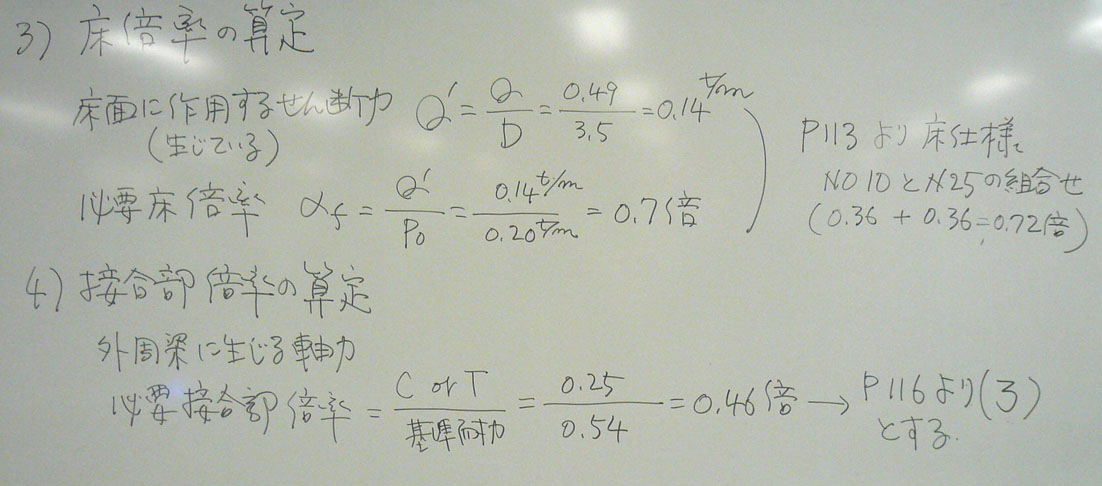 3) 床倍率の算定
床面に作用するせん断力 Q' = Q/D = 0.49/3.5 = 0.14 t/m
(生じている)
必要床倍率 αf = Q'/P0 = 0.14t/m / 0.20t/m = 0.7倍
P113より床仕様
NO10とN25の組合せ
(0.36 + 0.36=0.72倍)
4) 接合部倍率の算定
外周梁に生じる軸力
必要接合部倍率 = C or T/基準耐力 = 0.25/0.54 = 0.46倍 → P116より(3)
とする.